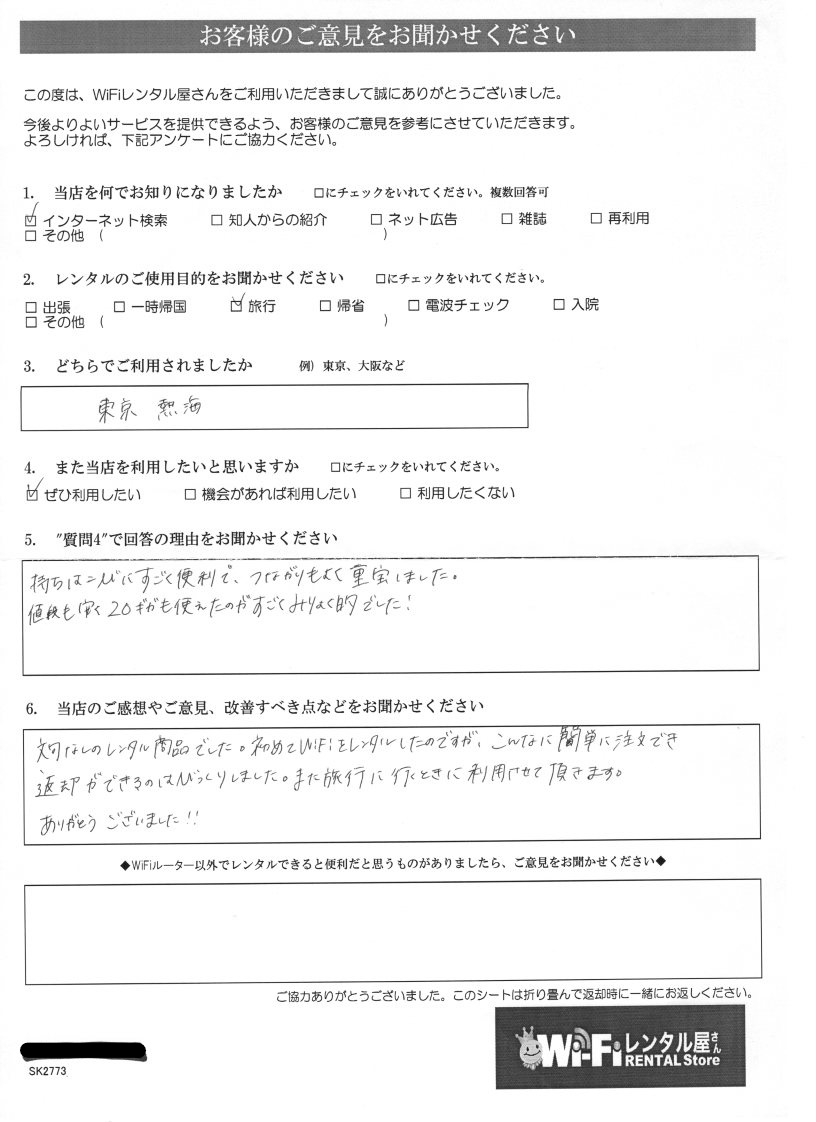 お客様のご意見をお聞かせください
この度は、WiFiレンタル屋さんをご利用いただきまして誠にありがとうございました。
今後よりよいサービスを提供できるよう、お客様のご意見を参考にさせていただきます。
よろしければ、下記アンケートにご協力ください。
1. 当店を何でお知りになりましたか □にチェックをいれてください。複数回答可
☑ インターネット検索 □ 知人からの紹介 □ ネット広告 □ 雑誌 □ 再利用
□ その他 ( )
2. レンタルのご使用目的をお聞かせください □にチェックをいれてください。
□ 出張 □ 一時帰国 ☑ 旅行 □ 帰省 □ 電波チェック □ 入院
□ その他 ( )
3. どちらでご利用されましたか 例）東京、大阪など
東京 熱海
4. また当店を利用したいと思いますか □にチェックをいれてください。
☑ ぜひ利用したい □ 機会があれば利用したい □ 利用したくない
5. "質問4"で回答の理由をお聞かせください
持ちはこびにすごく便利で、つながりもよく重宝しました。
値段も安く20ギガも使えたのがすごくみりょく的でした!
6. 当店のご感想やご意見、改善すべき点などをお聞かせください
文句なしのレンタル商品でした。初めてWiFiをレンタルしたのですが、こんなに簡単に注文でき
返却ができるのはびっくりしました。また旅行に行くときに利用させて頂きます。
ありがとうございました!!
◆WiFiルーター以外でレンタルできると便利だと思うものがありましたら、ご意見をお聞かせください◆
ご協力ありがとうございました。このシートは折り畳んで返却時に一緒にお返しください。
Wi-Fiレンタル屋さん
RENTAL Store
SK2773